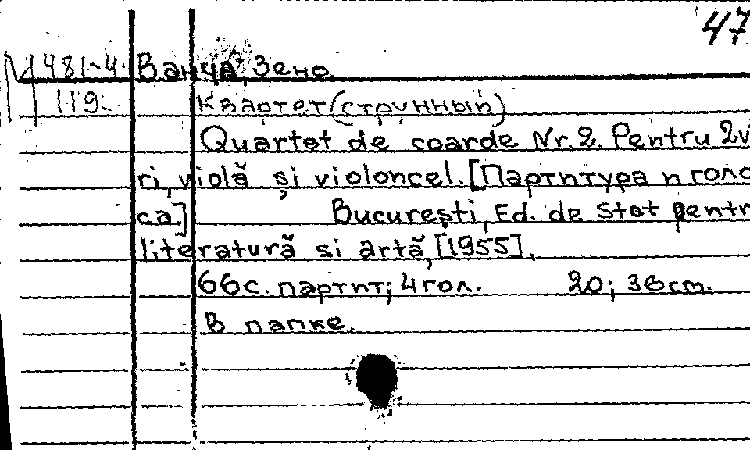 47
М 481-4 Ванча, Зено
119 Квартет (струнный)
Quartet de coarde Nr. 2. Pentru 2 vi
ri, violă și violoncel. [Партитура и голо
са.] București, Ed. de Stat pentr
literatură si artă, [1955].
66с. партит; 4 гол. 20; 36 см.
В папке.